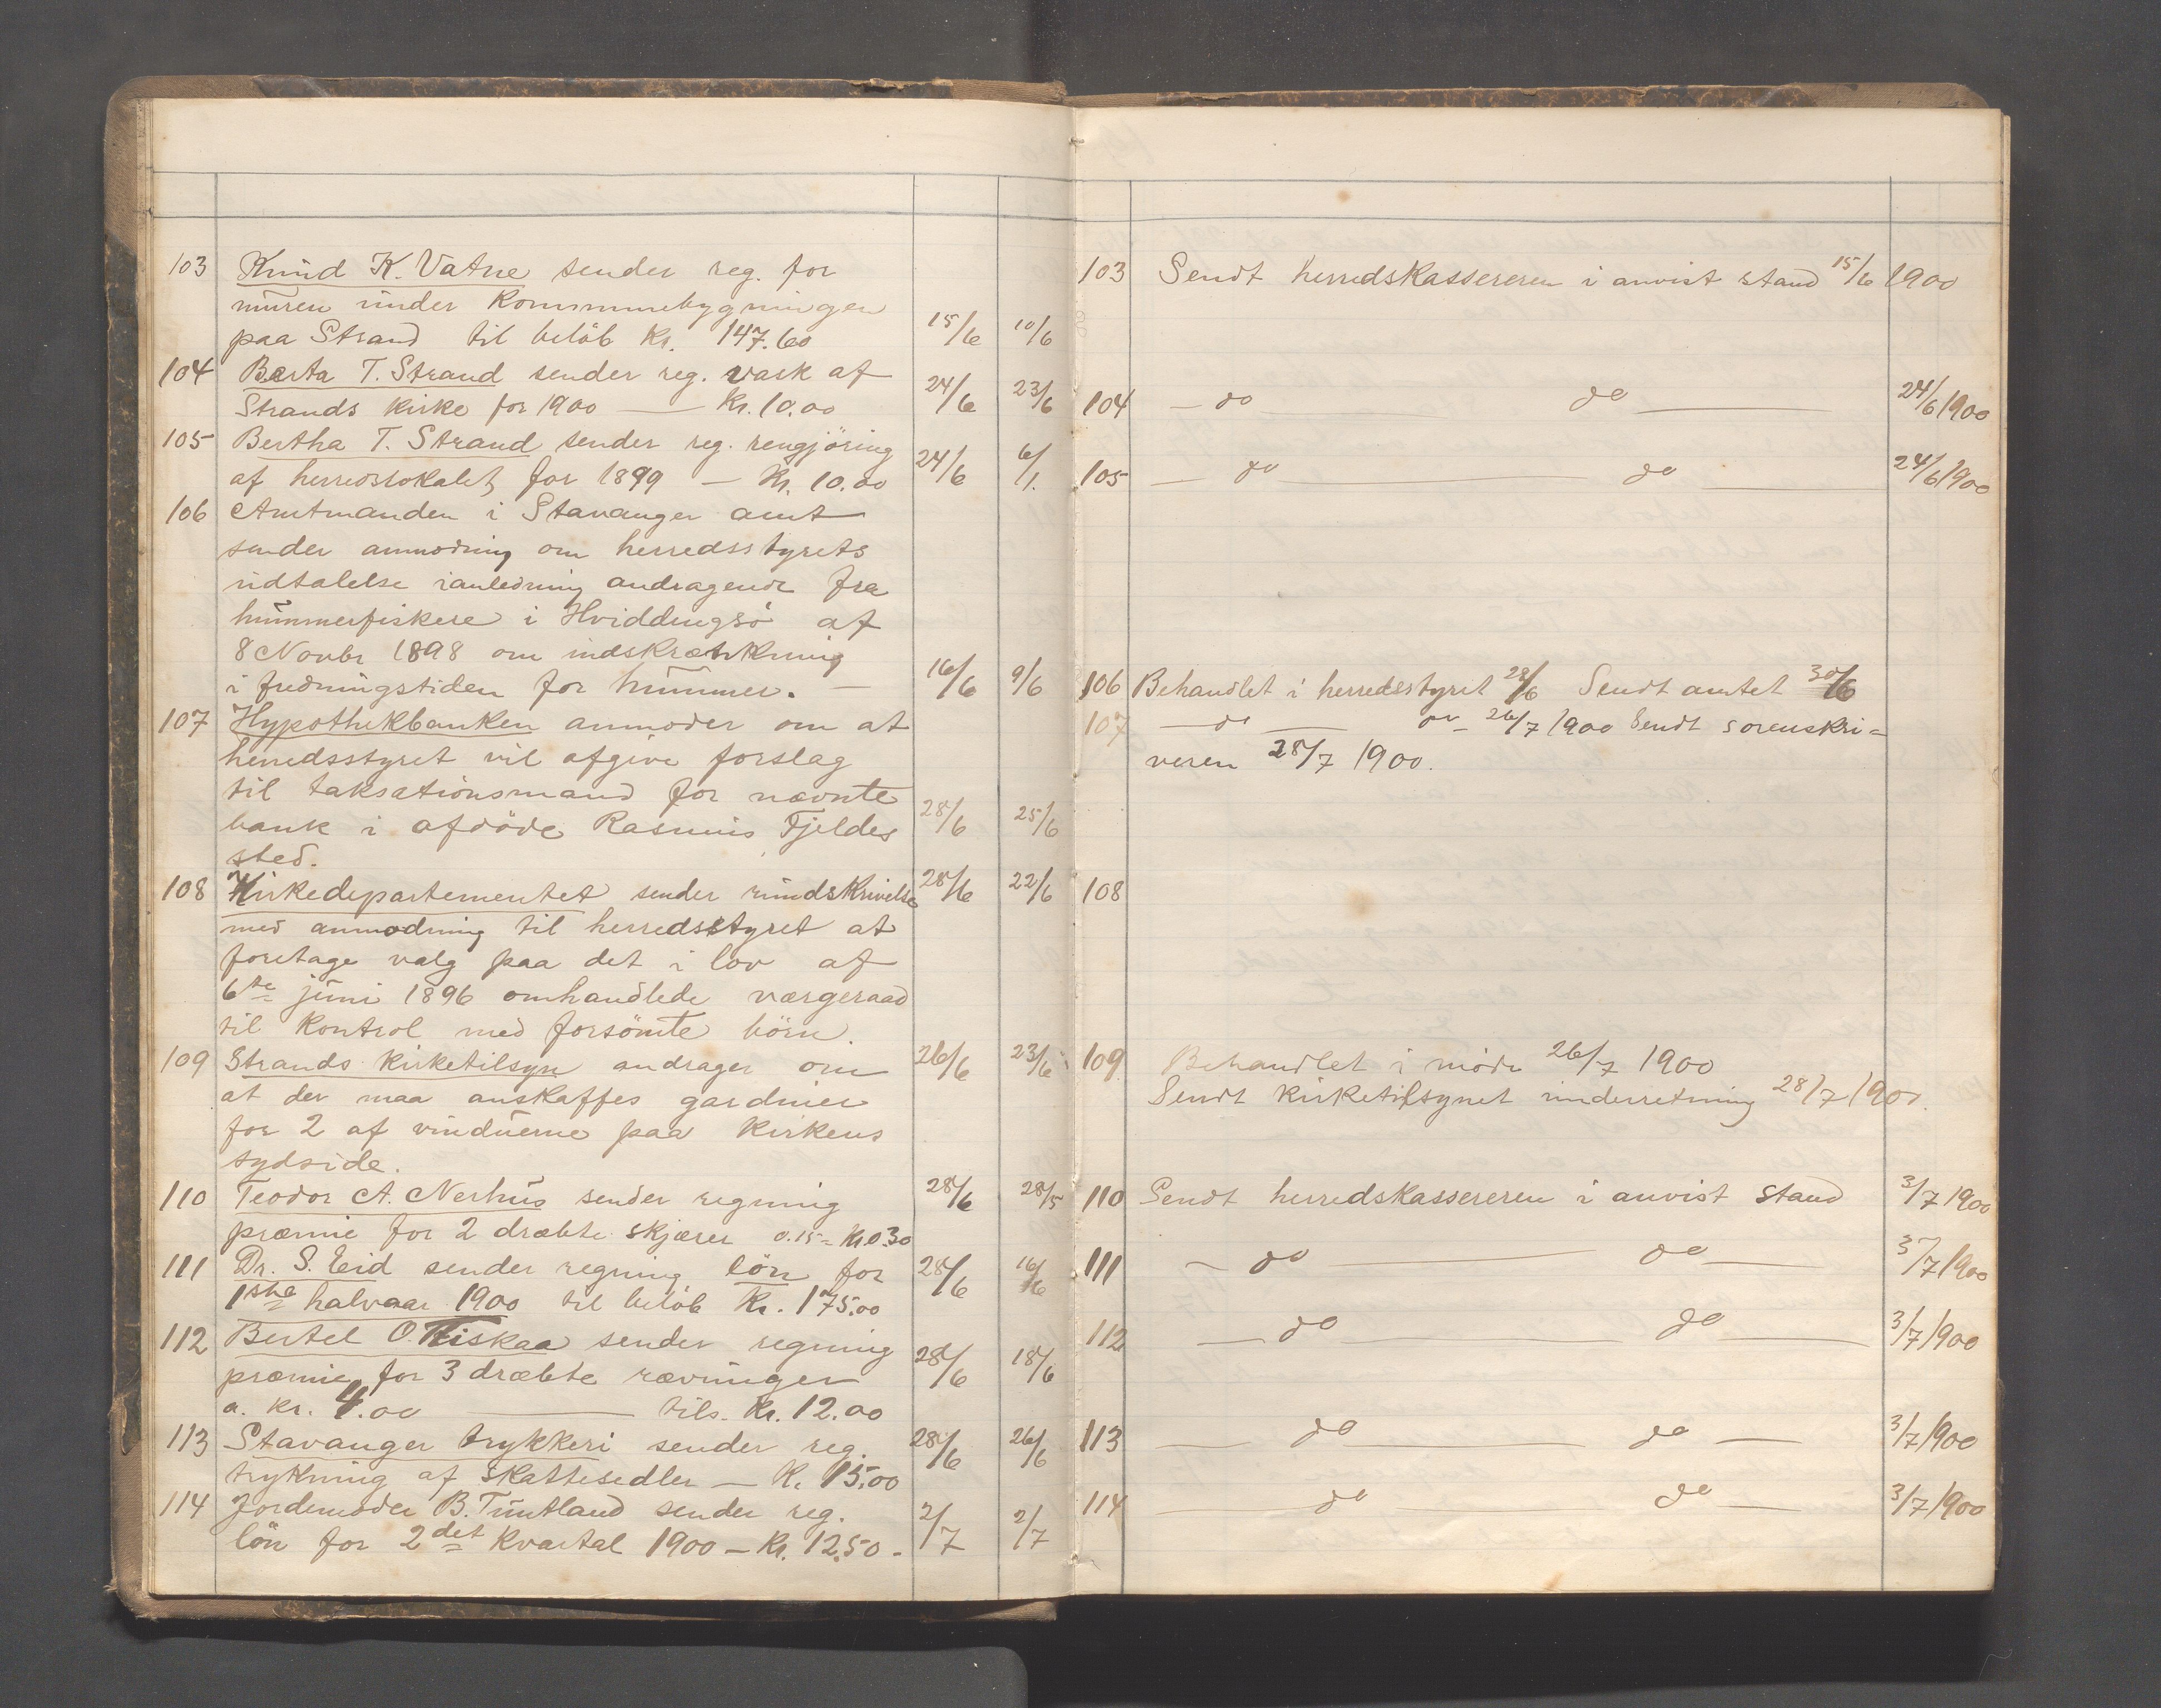 103 Knud K. Vatne sender reg. for
muren under kommunebygningen
paa Strand til beløb Kr. 147.60 15/6 10/6
104 Berta T. Strand sender reg. vask af
Strands kirke for 1900 — Kr. 10.00 24/6 23/6
105 Bertha T. Strand sender reg. rengjöring
af herredslokalet for 1899 — Kr. 10.00 24/6 6/1.
106 Amtmanden i Stavanger amt
sender anmodning om herredsstyrets
udtalelse ianledning andragende fra
hummerfiskere i Hviddingsö af
8 Novbr 1898 om indskrænkning
i fredningstiden for hummer. — 16/6 9/6
107 Hypothekbanken anmoder om at
herredsstyret vil afgive forslag
til taksationsmand for nævnte
bank i afdöde Rasmus Tjeldes 28/6 25/6
sted.
108 Kirkedepartementet sender rundskrivelse 28/6 22/6
med anmodning til herredsstyret at
foretage valg paa det i lov af
6te juni 1896 omhandlede værgeraad
til kontrol med forsömte börn.
109 Strands kirketilsyn andrager om 26/6 23/6
at der maa anskaffes gardiner
for 2 af vinduerne paa kirkens
sydside.
110 Teodor A. Nerhus sender regning 28/6 28/5
præmie for 2 dræbte skjærer 0.15 = Kr 0.30
111 Dr. S. Eid sender regning lön for 28/6 16/6
1ste halvaar 1900 til belöb Kr. 175.00
112 Bertel O. Kiskaa sender regning
præmie for 3 dræbte rævunger 28/6 18/6
a. kr. 4.00 — tils. Kr. 12.00
113 Stavanger trykkeri sender reg. 28/6 26/6
trykning af skattesedler — Kr. 15.00
114 Jordemoder B. Tuntland sender reg.
lön for 2det kvartal 1900 — Kr. 12.50 - 2/7 2/7
103 Sendt herredskassereren i anvist stand 15/6 1900
104 — do — do — 24/6 1900
105 — do — do — 24/6 1900
106 Behandlet i herredsstyret 28/6 Sendt amtet 30/6
107 — do — 26/7 1900 Sendt sorenskri=
veren 28/7 1900.
108
109 Behandlet i möde 26/7 1900
Sendt kirketilsynet underretning 28/7 1900.
110 Sendt herredskassereren i anvist stand 3/7 1900
111 — do — do — 3/7 1900
112 — do — do — 3/7 1900
113 — do — do — 3/7 1900
114 — do — do — 3/7 1900